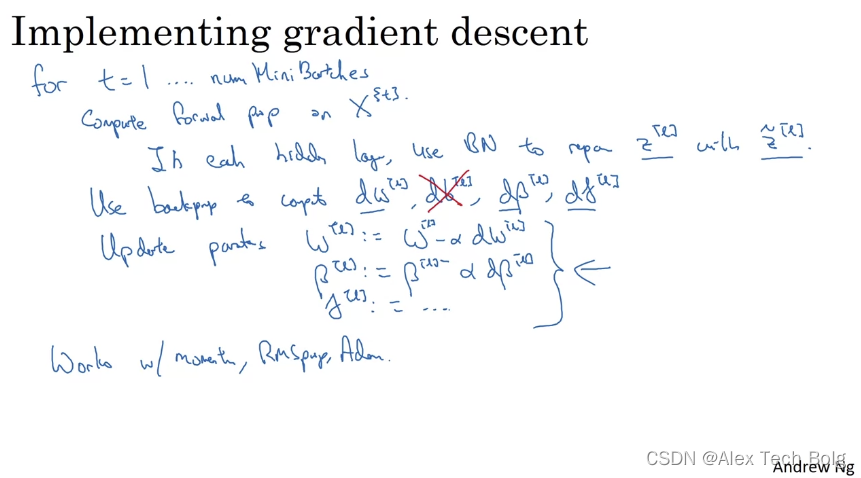 Implementing gradient descent
for t=1 .... num Mini Batches
Compute forwal pop on X^{t}.
In eah hidden lay, use BN to repon z^[l] with z̃^[l].
Use backprop to compt dw^[l], db^[l], dβ^[l], dγ^[l]
Update parates w^[l] := w^[l] - α dw^[l]
β^[l] := β^[l] - α dβ^[l] ←
γ^[l] := ....
Works w/ momentm, RMSprop, Adam.
CSDN @Alex Tech Bolg
Andrew Ng